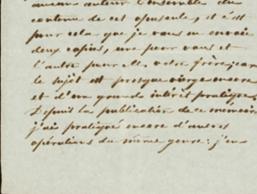 aucun auteur l'ensemble du
contenu de cet opuscule, il s'est
pour cela que je vous en envoie
deux copies, une pour vous et
l'autre pour votre frère, car
le sujet est presque vierge encore
et d'un grand intérêt pratique.
Depuis la publication de ce mémoire
j'ai pratiqué encore d'autres
opérations du même genre: j'en